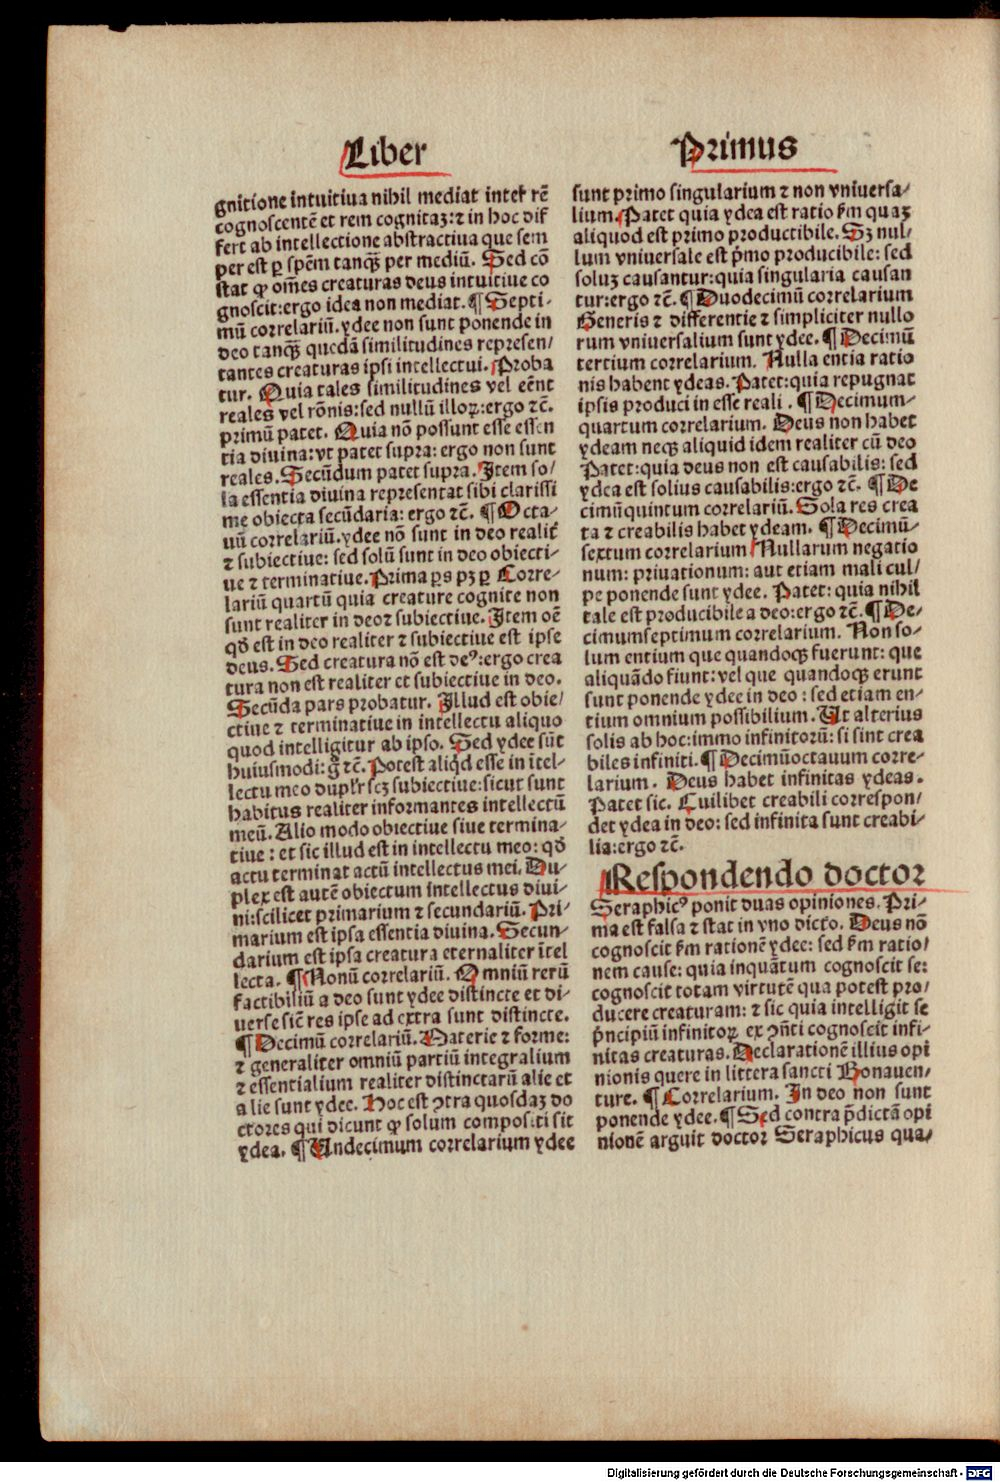 Liber
gnitione intuitiua nihil mediat inteƚ rē
cognoscentē et rem cognitaꝫ:⁊ in hoc dif
fert ab intellectione abstractiua que sem
per est ꝑ spēm tanqꝫ per mediū. Sed cō
stat ꝙ oēs creaturas deus intuitiue co
gnoscit:ergo idea non mediat. ¶ Septi-
mū correlariū. ydee non sunt ponende in
deo tanqꝫ quedā similitudines represen/
tantes creaturas ipsi intellectui. Proba
tur. Quia tales similitudines vel eēnt
reales vel rōnis: sed nullū illoꝝ:ergo ⁊c̄.
primū patet. Quia nō possunt esse essen
tia diuina: vt patet supra: ergo non sunt
reales. Secūdum patet supra. Item so/
la essentia diuina representat sibi clarissi
me obiecta secūdaria: ergo ⁊c̄. ¶ Octa-
uū correlariū. ydee nō sunt in deo realit̄
⁊ subiectiue: sed solū sunt in deo obiecti-
ue ⁊ terminatiue. Prima ꝑs pꝫ ꝑ Corre-
lariū quartū quia creature cognite non
sunt realiter in deo⁊ subiectiue. Item oē
qd̄ est in deo realiter ⁊ subiectiue est ipse
deus. Sed creatura nō est deꝰ:ergo crea
tura non est realiter et subiectiue in deo.
Secūda pars probatur. Illud est obie/
ctiue ⁊ terminatiue in intellectu aliquo
quod intelligitur ab ipso. Sed ydee sūt
huiusmodi: g̊ ⁊c̄. Potest aliqd̄ esse in ītel-
lectu meo dupƚr scꝫ subiectiue: sicut sunt
habitus realiter informantes intellectū
meū. Alio modo obiectiue siue termina-
tiue : et sic illud est in intellectu meo: qd̄
actu terminat actū intellectus mei. Du-
plex est autē obiectum intellectus diui-
ni: scilicet primarium ⁊ secundariū. Pri-
marium est ipsa essentia diuina. Secun-
darium est ipsa creatura eternaliter ītel
lecta. ¶ Nonū correlariū. Omniū rerū
factibiliū a deo sunt ydee distincte et di-
uerse sic̄ res ipse ad extra sunt distincte.
¶ Decimū correlariū. Materie ⁊ forme:
⁊ generaliter omniū partiū integralium
⁊ essentialium realiter distinctarū alie et
alie sunt ydee. Hoc est ꝯtra quosdaꝫ do
ctores qui dicunt ꝙ solum compositi sit
ydea. ¶ Undecimum correlarium ydee
Primus
sunt primo singularium ⁊ non vniuersa/
lium. Patet quia ydea est ratio ẜm quaꝫ
aliquod est primo productibile. Sꝫ nul/
lum vniuersale est p̄mo producibile: sed
soluꝫ causantur: quia singularia causan
tur:ergo ⁊c̄. ¶ Duodecimū correlarium
Generis ⁊ differentie ⁊ simpliciter nullo
rum vniuersalium sunt ydee. ¶ Decimū
tertium correlarium. Nulla entia ratio
nis habent ydeas. Patet: quia repugnat
ipsis produci in esse reali . ¶ Decimum-
quartum correlarium. Deus non habet
ydeam neqꝫ aliquid idem realiter cū deo
Patet: quia deus non est causabilis: sed
ydea est solius causabilis:ergo ⁊c̄. ¶ De
cimūquintum correlariū. Sola res crea
ta ⁊ creabilis habet ydeam. ¶ Decimū-
sextum correlarium Nullarum negatio
num: priuationum: aut etiam mali cul/
pe ponende sunt ydee. Patet: quia nihil
tale est producibile a deo:ergo ⁊c̄. ¶ De-
cimumseptimum correlarium. Non so-
lum entium que quandoqꝫ fuerunt: que
aliquādo fiunt: vel que quandoqꝫ erunt
sunt ponende ydee in deo : sed etiam en-
tium omnium possibilium. Ut alterius
solis ab hoc: immo infinitorū: si sint crea
biles infiniti. ¶ Decimūoctauum corre-
larium . Deus habet infinitas ydeas.
Patet sic. Cuilibet creabili correspon/
det ydea in deo: sed infinita sunt creabi-
lia:ergo ⁊c̄.
¶ Respondendo doctor
Seraphicꝰ ponit duas opiniones. Pri-
ma est falsa ⁊ stat in vno dicto. Deus nō
cognoscit ẜm rationē ydee: sed ẜm ratio/
nem cause: quia inquātum cognoscit se:
cognoscit totam virtutē qua potest pro/
ducere creaturam: ⁊ sic quia intelligit se
p̄ncipiū infinitoꝝ ex ꝯn̄ti cognoscit infi-
nitas creaturas. Declarationē illius opi
nionis quere in littera sancti Bonauen-
ture. ¶ Correlarium. In deo non sunt
ponende ydee. ¶ Sed contra p̄dictā opi
nionē arguit doctor Seraphicus qua/
Digitalisierung gefördert durch die Deutsche Forschungsgemeinschaft - DFG